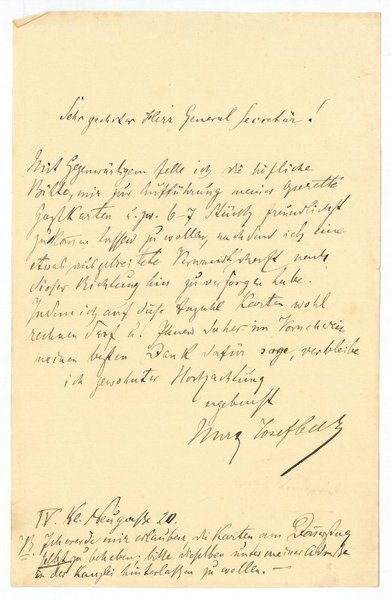 Sehr geehrter Herr General Secretär!
Mit Gegenwärtigem stelle ich die höfliche
Bitte, mir zur Aufführung meiner Operette
Gastkarten u. zw. 6-7 Stück freundlichst
zukommen lassen zu wollen, nachdem ich eine
etwas ausgebreitete Verwandtschaft nach
dieser Richtung hin zu versorgen habe.
Indem ich auf diese Anzahl Karten wohl
rechnen darf u. Ihnen daher im Vorhinein
meinen besten Dank dafür sage, verbleibe
ich gewohnter Hochachtung
ergebenst
Josef
IV. Kl. Neugasse 20.
Ich werde mir erlauben, die Karten am Donnerstag
selbst zu beheben, bitte dieselben unter meiner Adresse
in der Kanzlei hinterlassen zu wollen. —